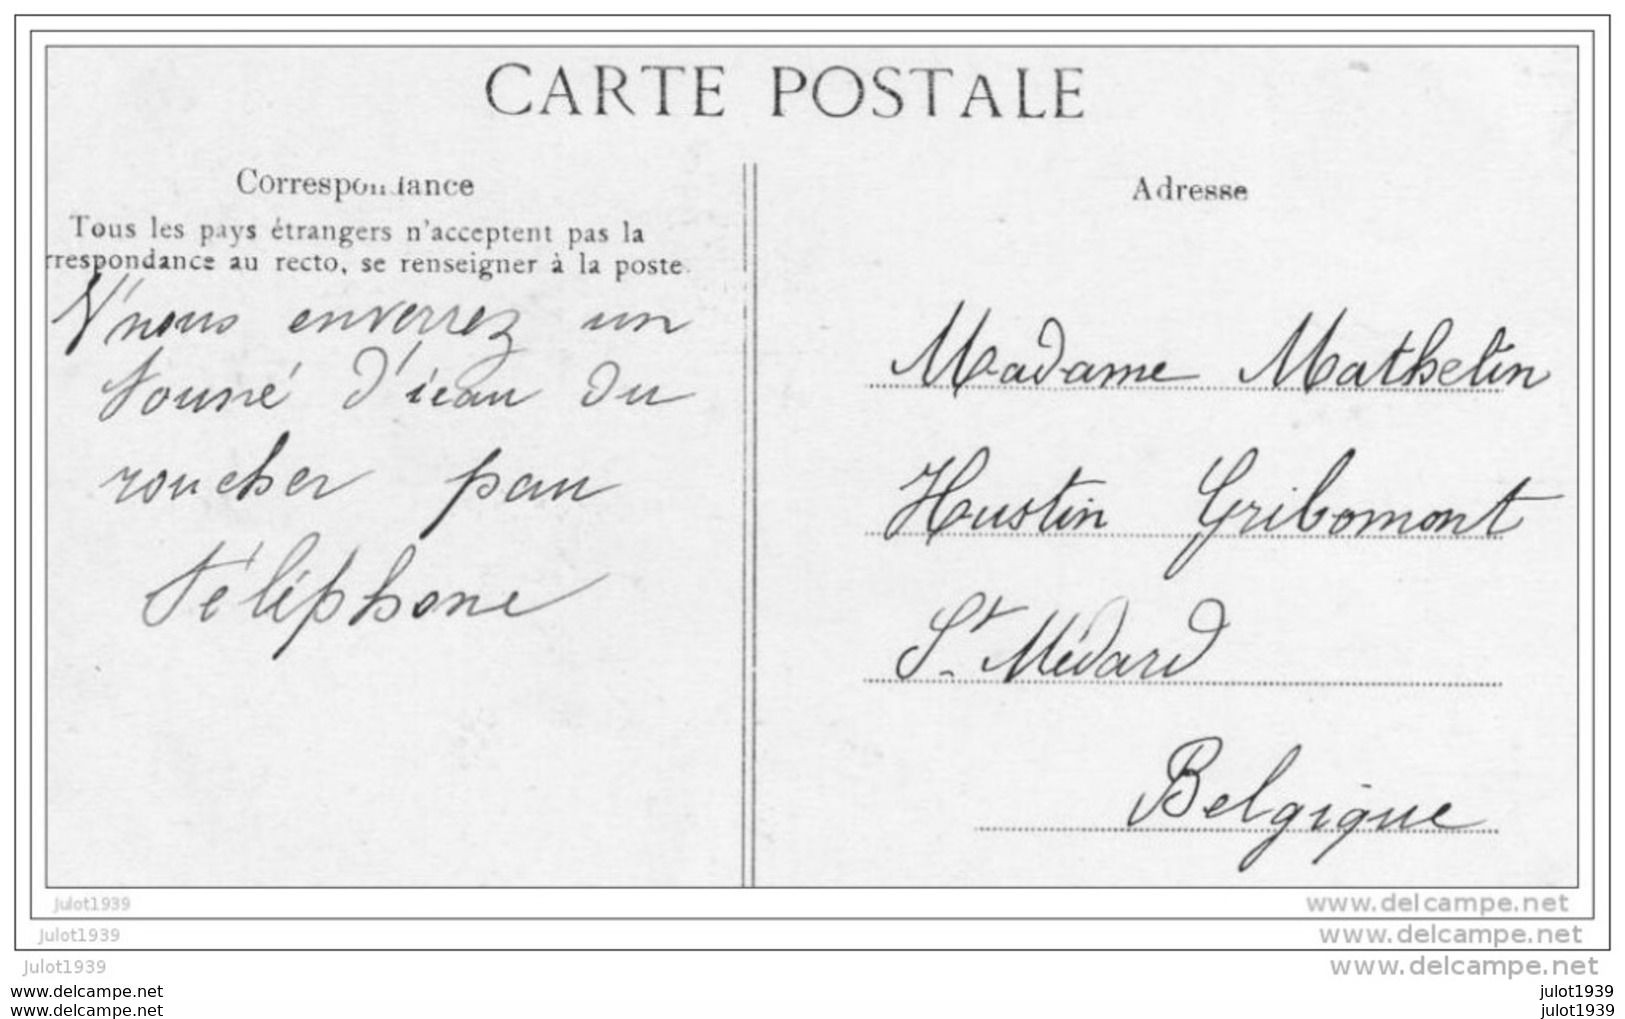 CARTE POSTALE
Correspondance
Tous les pays étrangers n'acceptent pas la
rrespondance au recto, se renseigner à la poste.
V'nous enverrez un
d'ieau du
roucher pau
téléphone
Adresse
Madame Mathelin
Hustin Gribomont
St Médard
Belgique
Julot1939
www.delcampe.net
Julot1939
www.delcampe.net
Julot1939
www.delcampe.net
www.delcampe.net
julot1939
www.delcampe.net
julot1939